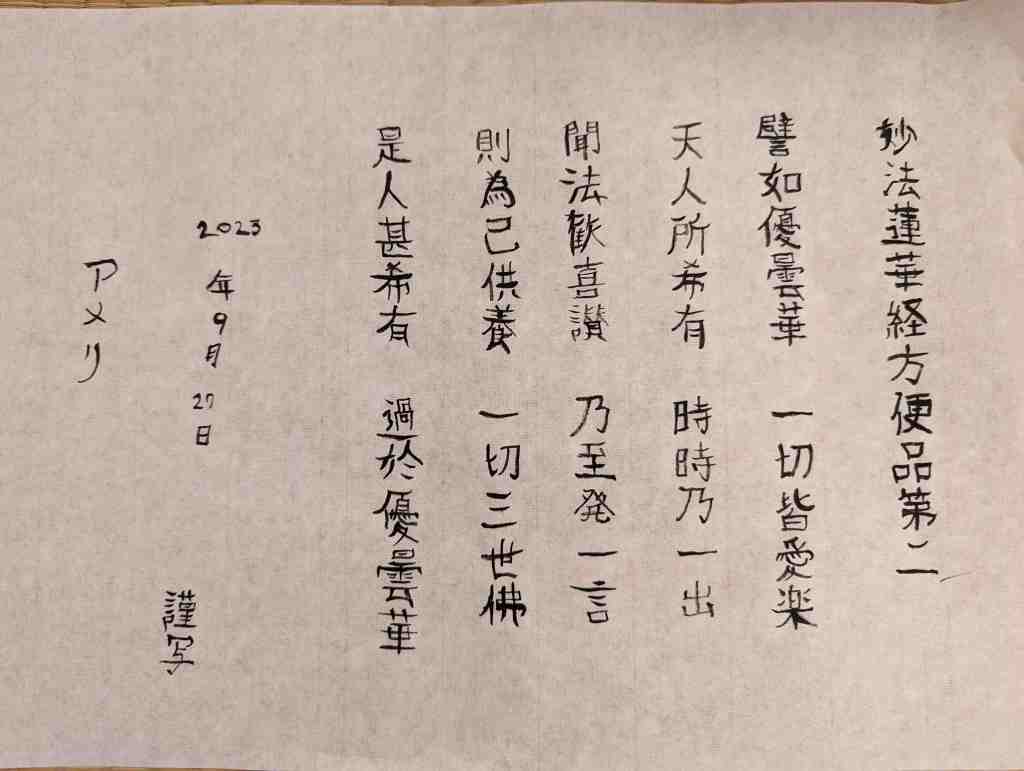 妙法蓮華経方便品第二
譬如優曇華　一切皆愛楽
天人所希有　時時乃一出
聞法歓喜讃　乃至発一言
則為已供養　一切三世佛
是人甚希有　過於優曇華
2023年9月27日
謹写
アメリ